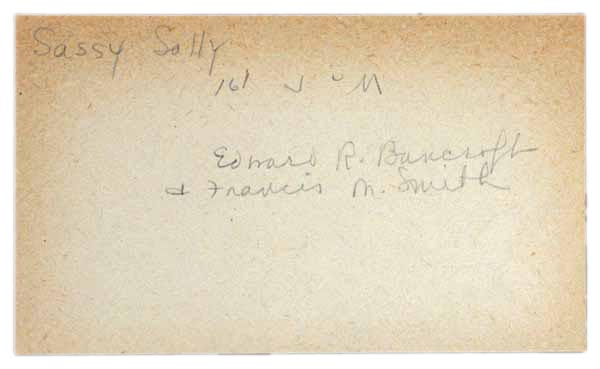 Sassy Sally
16'
Edward R. Bancroft
& Francis M. Smith